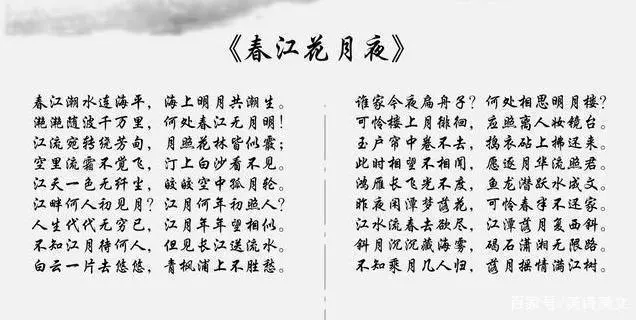 《春江花月夜》
春江潮水连海平，海上明月共潮生。
滟滟随波千万里，何处春江无月明！
江流宛转绕芳甸，月照花林皆似霰；
空里流霜不觉飞，汀上白沙看不见。
江天一色无纤尘，皎皎空中孤月轮。
江畔何人初见月？江月何年初照人？
人生代代无穷已，江月年年望相似。
不知江月待何人，但见长江送流水。
白云一片去悠悠，青枫浦上不胜愁。
谁家今夜扁舟子？何处相思明月楼？
可怜楼上月徘徊，应照离人妆镜台。
玉户帘中卷不去，捣衣砧上拂还来。
此时相望不相闻，愿逐月华流照君。
鸿雁长飞光不度，鱼龙潜跃水成文。
昨夜闲潭梦落花，可怜春半不还家。
江水流春去欲尽，江潭落月复西斜。
斜月沉沉藏海雾，碣石潇湘无限路。
不知乘月几人归，落月摇情满江树。
百家号/英诗美文